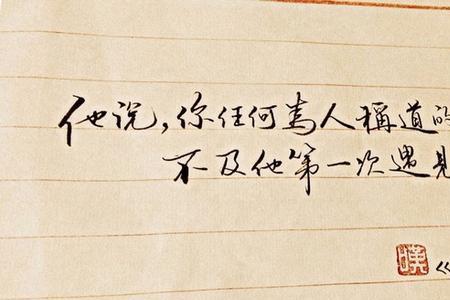 他说,你任何為人稱道的
不及他第一次遇見
《